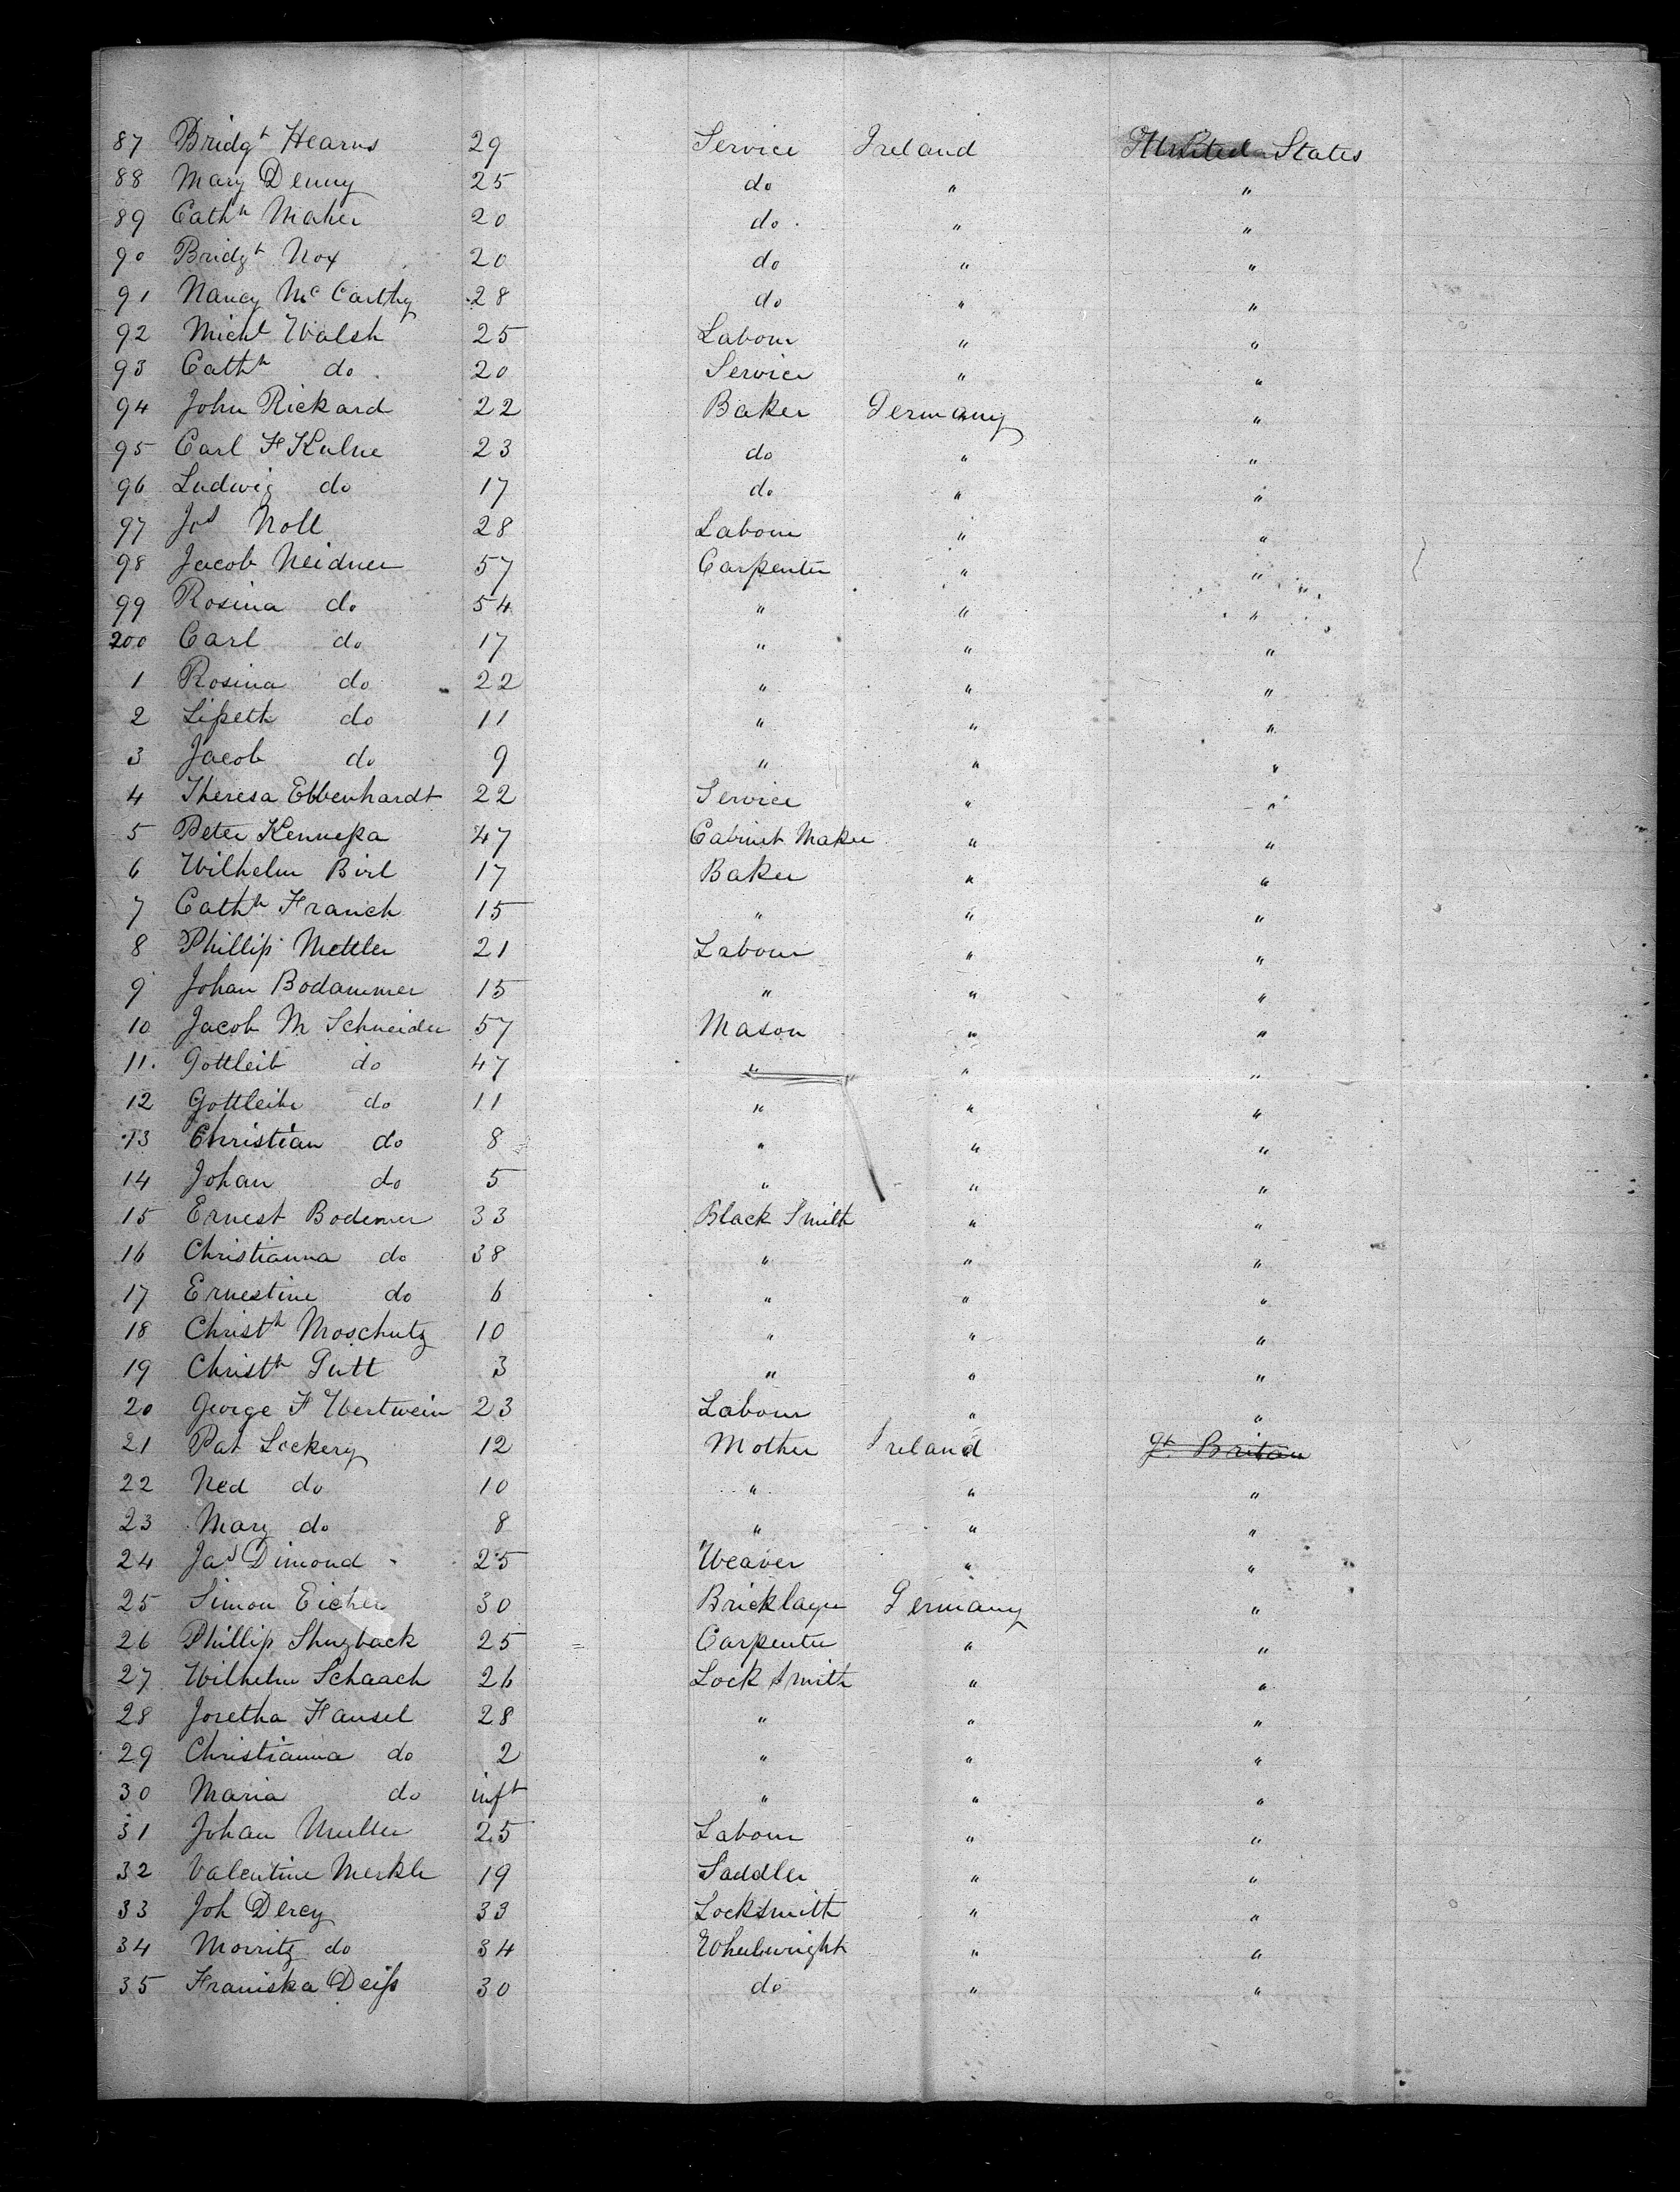 87 Bridgt Hearns 29 Service Ireland United States
88 Mary Denny 25 do " "
89 Cathn Maher 20 do " "
90 Bridgt Nox 20 do " "
91 Nancy McCarthy 28 do " "
92 Michl Walsh 25 Labour " "
93 Cathn do 20 Service " "
94 John Rickard 22 Baker Germany "
95 Carl F Kulne 23 do " "
96 Ludwig do 17 do " "
97 Jos Noll 28 Labour " "
98 Jacob Neidner 57 Carpenter " "
99 Rosina do 54 " " "
200 Carl do 17 " " "
1 Rosina do 22 " " "
2 Lipeth do 11 " " "
3 Jacob do 9 " " "
4 Theresa Ebbenhardt 22 Service " "
5 Peter Kennepa 47 Cabinet Maker " "
6 Wilhelm Birl 17 Baker " "
7 Cathn Franch 15 " " "
8 Phillip Mettler 21 Labour " "
9 Johan Bodammer 15 " " "
10 Jacob M Schneider 57 Mason " "
11 Gottleib do 47 " " "
12 Gottleibe do 11 " " "
13 Christian do 8 " " "
14 Johan do 5 " " "
15 Ernest Bodemer 33 Black Smith " "
16 Christianna do 38 " " "
17 Ernestine do 6 " " "
18 Christh Moschutz 10 " " "
19 Christh Gutt 3 " " "
20 George F 23 Labour " "
21 Pat Lockery 12 Mother Ireland Gt Britain
22 Ned do 10 " " "
23 Mary do 8 " " "
24 Jas Dimond 25 Weaver " "
25 Simon Eicher 30 Bricklayer Germany "
26 Phillip Shuzback 25 Carpenter " "
27 Wilhelm Schaach 26 Lock Smith " "
28 Joretha Hansel 28 " " "
29 Christianna do 2 " " "
30 Maria do inft " " "
31 Johan Muller 25 Labour " "
32 Valentine Merkle 19 Saddler " "
33 Joh Dercy 33 Locksmith " "
34 Morritz do 34 Wheelwright " "
35 Franiska Deiss 30 do " "